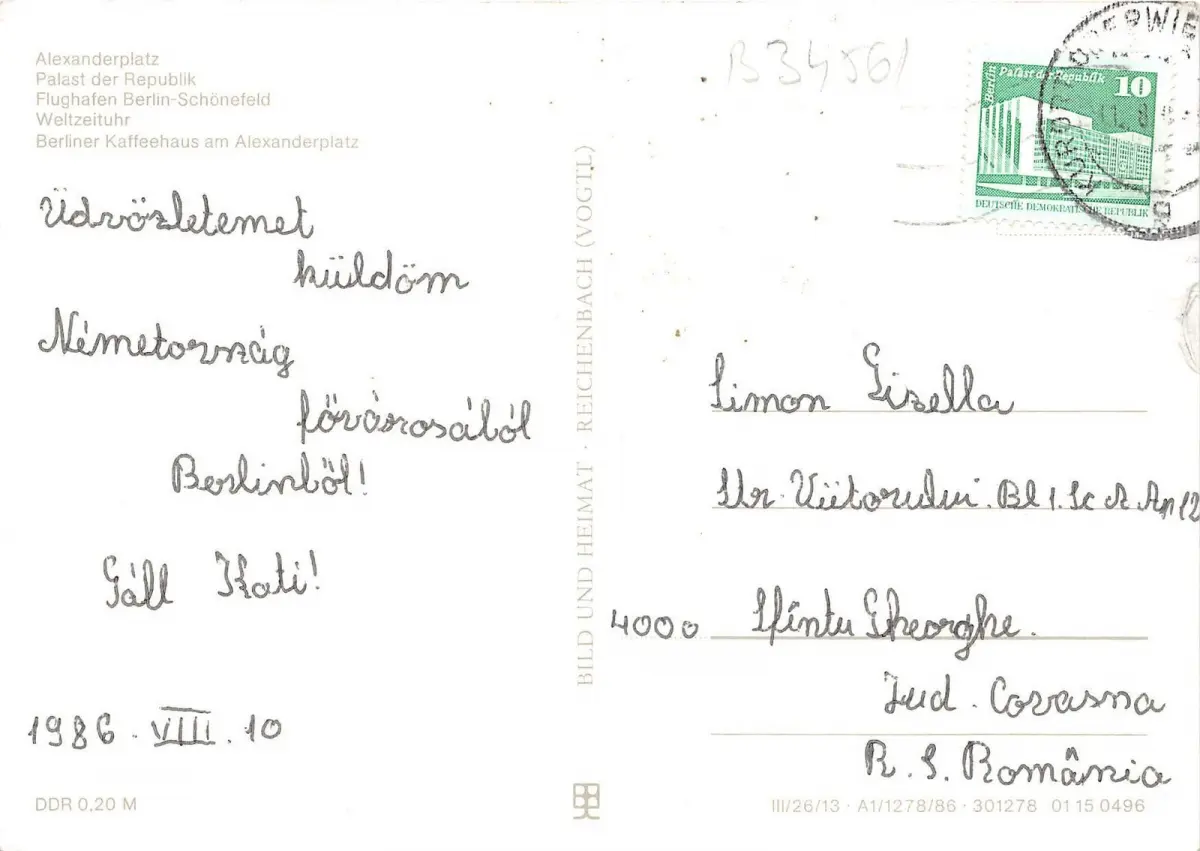 Alexanderplatz
Palast der Republik
Flughafen Berlin-Schönefeld
Weltzeituhr
Berliner Kaffeehaus am Alexanderplatz
Üdvözletemet
küldöm
Németország
fővárosából
Berlinből!
Gáll Kati!
1986. VIII. 10
DDR 0,20 M
BILD UND HEIMAT · REICHENBACH (VOGTL)
B34561
Berlin
Palast der Republik
10
DEUTSCHE DEMOKRATISCHE REPUBLIK
Simon Gizella
Str. Viitorului. Bl 1. Sc A Ap 12
4000 Sfîntu Gheorghe.
Jud. Covasna
R. S. România
III/26/13 · A1/1278/86 · 301278 01 15 0496